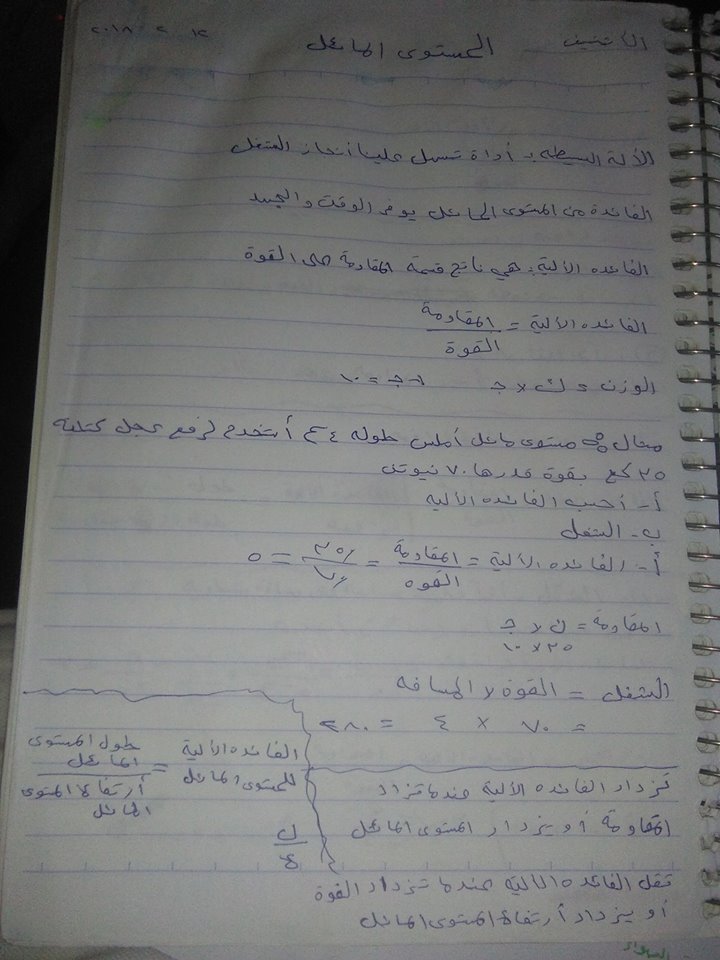 الأثنين    المستوى المائل    ١٢ ٢ ٢٠١٨
الألة البسيطه :- أداة تسهل علينا أنجاز الشغل
الفائدة من المستوى المائل يوفر الوقت والجهد
الفائده الألية : هي ناتج قسمة المقاومة على القوة
الفائده الألية = المقاومة / القوة
الوزن = ك × جـ    جـ = ١٠
مثال : مستوى مائل أملس طوله ٤ م أستخدم لرفع عجل كتلته
٣٥ كغ بقوة قدرها ٧٠ نيوتن
أ- أحسب الفائده الألية
ب- الشغل
أ- الفائده الألية = المقاومة / القوه = ٣٥٠ / ٧٠ = ٥
المقاومة = ك × جـ
٣٥ × ١٠
الشغل = القوة × المسافه
= ٧٠ × ٤ = ٢٨٠
الفائده الألية للمستوى المائل = طول المستوى المائل / أرتفاع المستوى المائل
ل / ع
تزداد الفائده الألية عندما تزاد
المقاومة أو يزدار المستوى المائل
تقل الفائده الالية عندما تزداد القوة
أو يزداد أرتفاع المستوى المائل